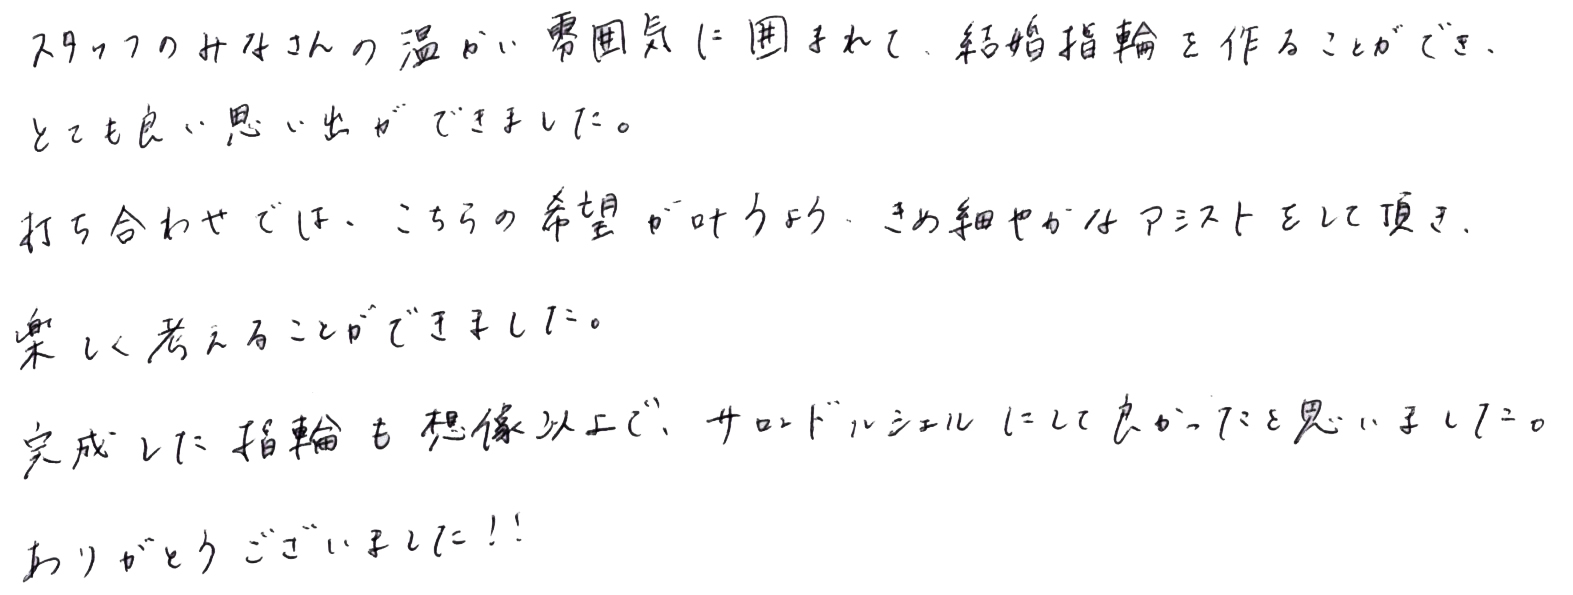 スタッフのみなさんの温かい雰囲気に囲まれて、結婚指輪を作ることができ、
とても良い思い出ができました。
打ち合わせでは、こちらの希望が叶うよう、きめ細やかなアシストをして頂き、
楽しく考えることができました。
完成した指輪も想像以上で、サロンドルシェルにして良かったと思いました。
ありがとうございました!!